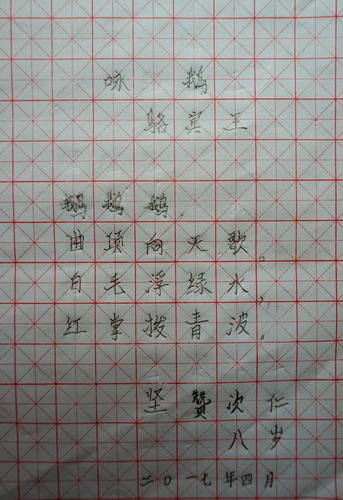 咏鹅
骆宾王
鹅鹅鹅,
曲项向天歌。
白毛浮绿水,
红掌拨青波。
坚赞次仁
八岁
二0一七年四月